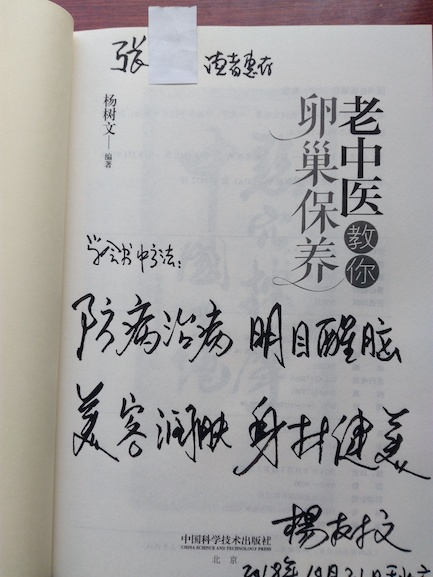 张 读者惠存
老中医教你
卵巢保养
杨树文 编著
学会书中方法:
防病治病 明目醒脑
美容润肤 身材健美
杨树文
中国科学技术出版社
CHINA SCIENCE AND TECHNOLOGY PRESS
北京